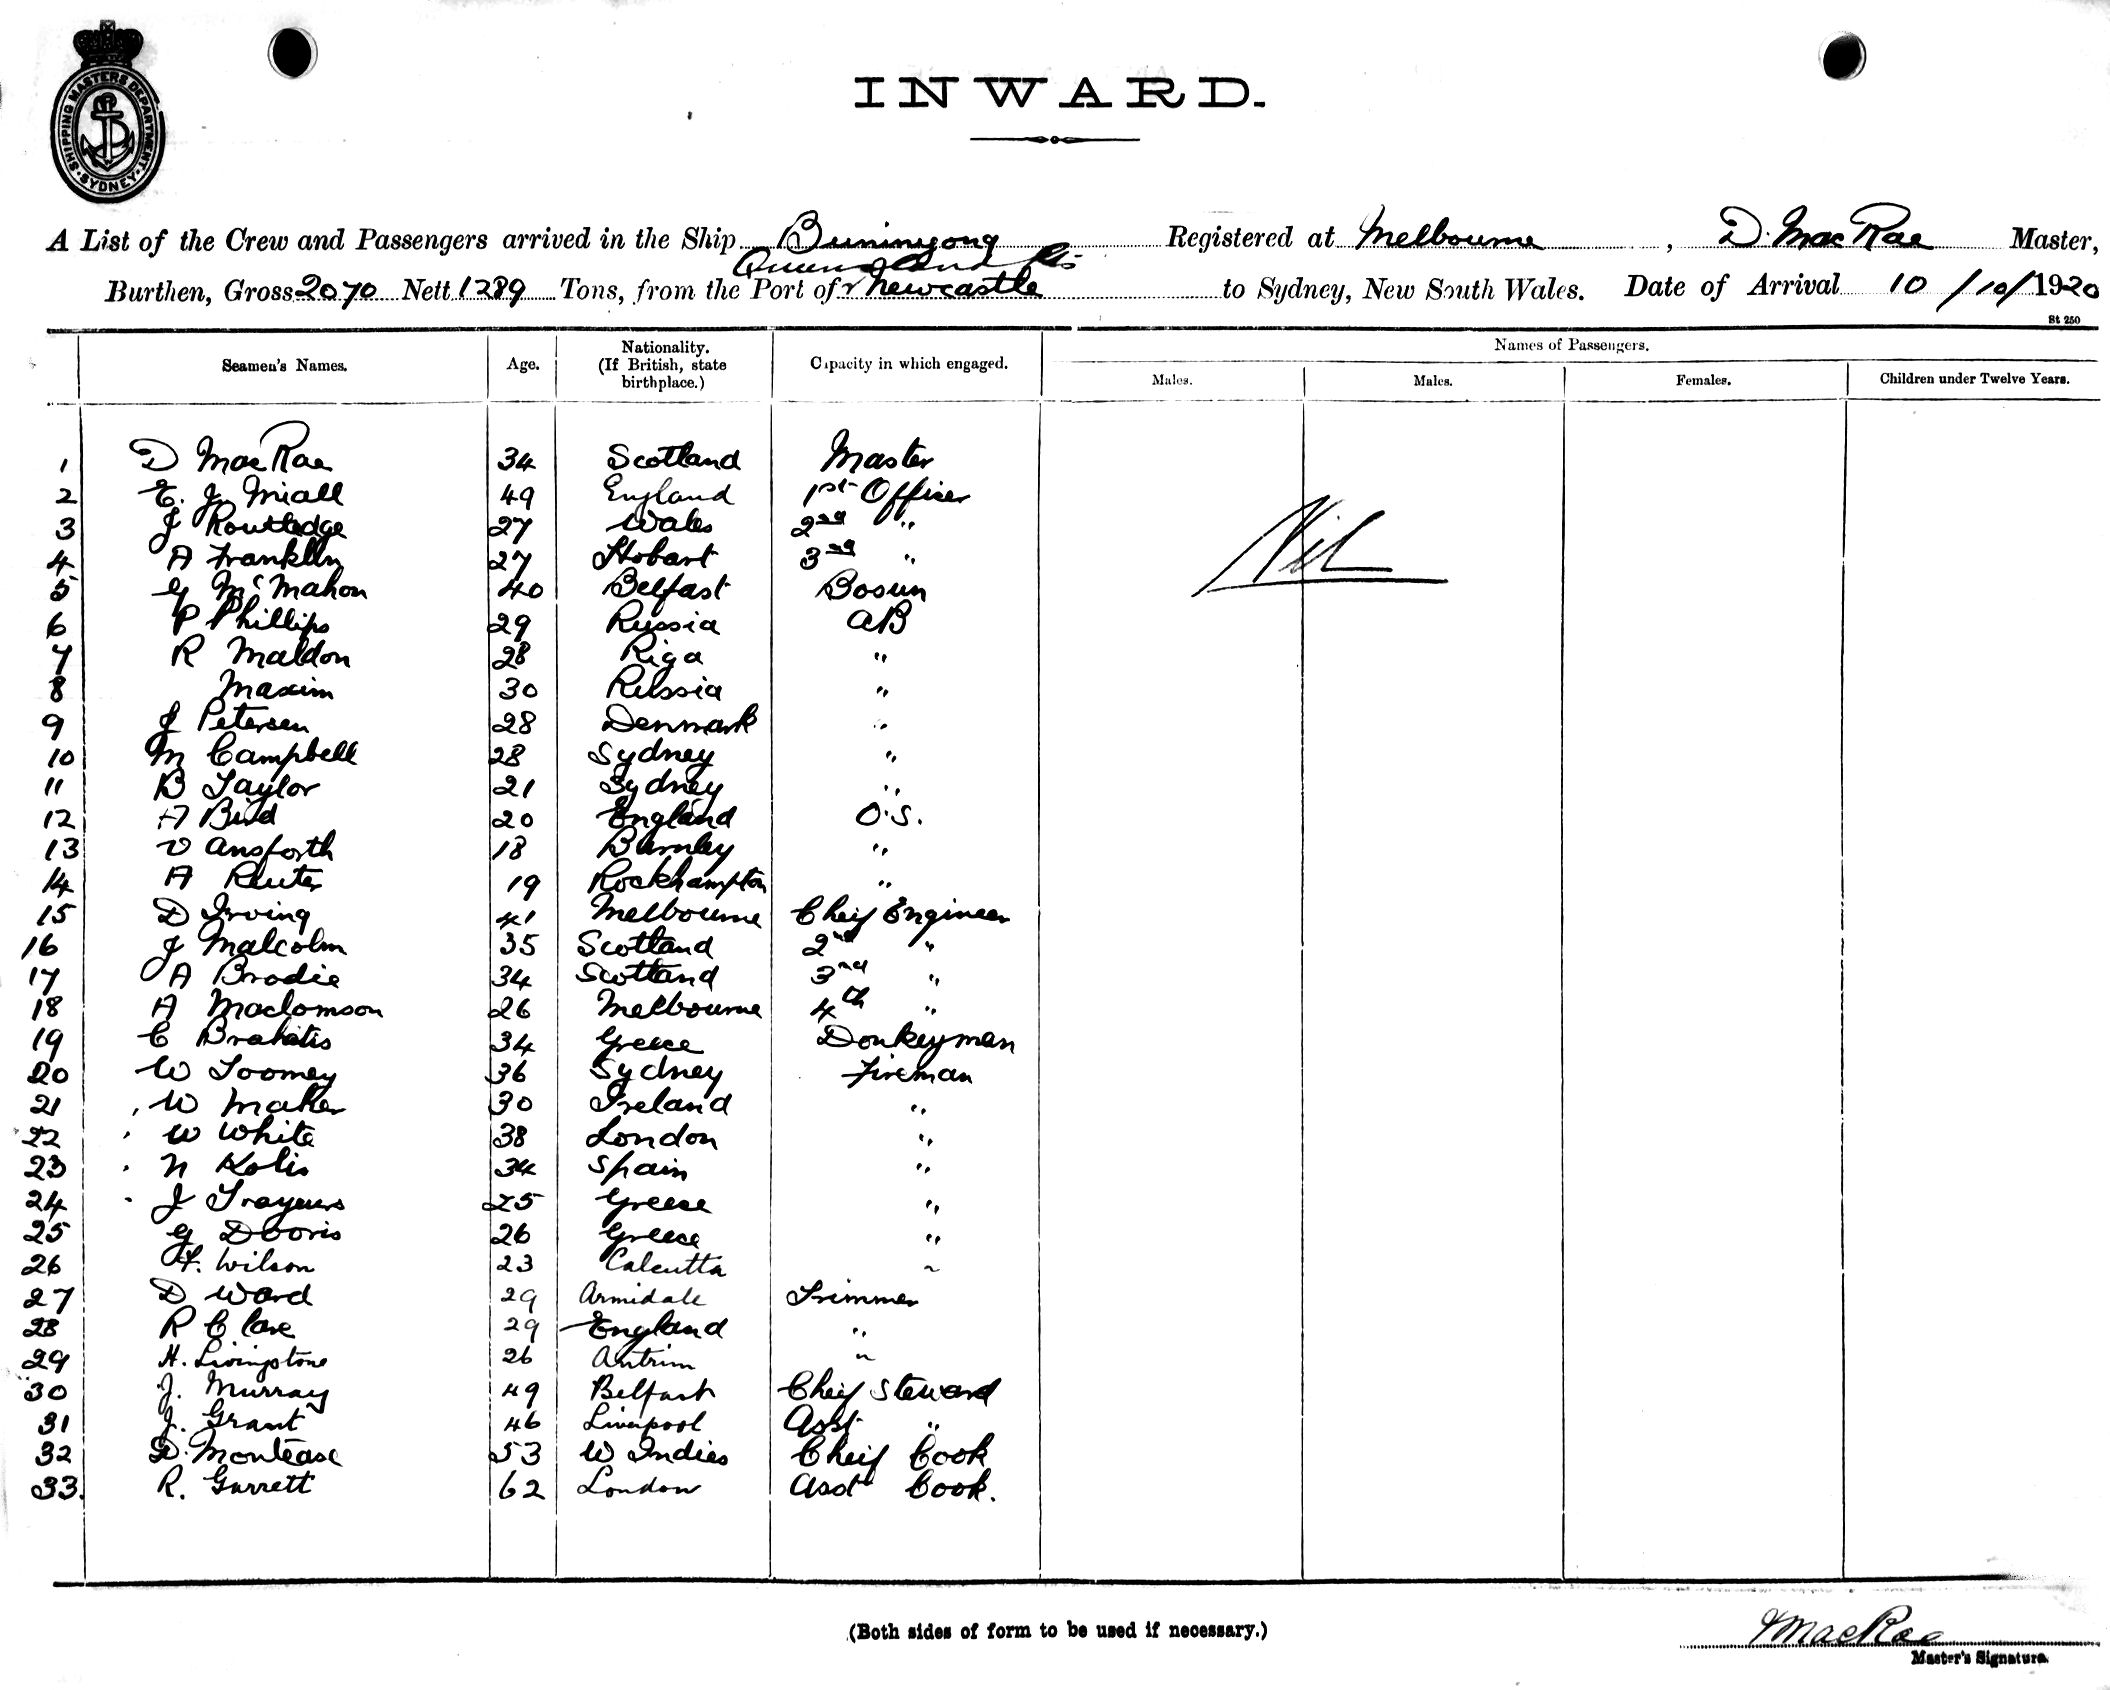 SHIPPING MASTERS DEPARTMENT · SYDNEY ·
INWARD.
A List of the Crew and Passengers arrived in the Ship Buninyong Registered at Melbourne, D. MacRae Master,
Queensland Pts
Burthen, Gross 2070 Nett 1289 Tons, from the Port of & Newcastle to Sydney, New South Wales. Date of Arrival 10/10/1920
St 250
Seamen's Names. Age. Nationality. (If British, state birthplace.) Capacity in which engaged. Names of Passengers.
Males. Males. Females. Children under Twelve Years.
1 D MacRae 34 Scotland Master
2 E. J. Miall 49 England 1st Officer
3 J Routledge 27 Wales 2nd "
4 A Franklin 27 Hobart 3rd "
Nil
5 G McMahon 40 Belfast Bosun
6 P Phillips 29 Russia AB
7 R Maldon 28 Riga "
8 Maxim 30 Russia "
9 J Petersen 28 Denmark "
10 M Campbell 28 Sydney "
11 B Taylor 21 Sydney "
12 A Bird 20 England O.S.
13 V Ansforth 18 Burnley "
14 A Reuter 19 Rockhampton "
15 D Irving 41 Melbourne Cheif Engineer
16 J Malcolm 35 Scotland 2nd "
17 A Brodie 34 Scotland 3rd "
18 A Maclomson 26 Melbourne 4th "
19 C Brahatis 34 Greece Donkeyman
20 W Toomey 36 Sydney Fireman
21 W Maher 30 Ireland "
22 W White 38 London "
23 N Kolis 34 Spain "
24 J 25 Greece "
25 G Dooris 26 Greece "
26 F. Wilson 23 Calcutta "
27 D Ward 29 Armidale Trimmer
28 R Clare 29 England "
29 H. Livingstone 26 Antrim "
30 J. Murray 49 Belfast Cheif Steward
31 J. Grant 46 Liverpool Asst "
32 D. Montease 53 W Indies Cheif Cook
33. R. Garrett 62 London Asst Cook.
(Both sides of form to be used if necessary.)
MacRae
Master's Signature.